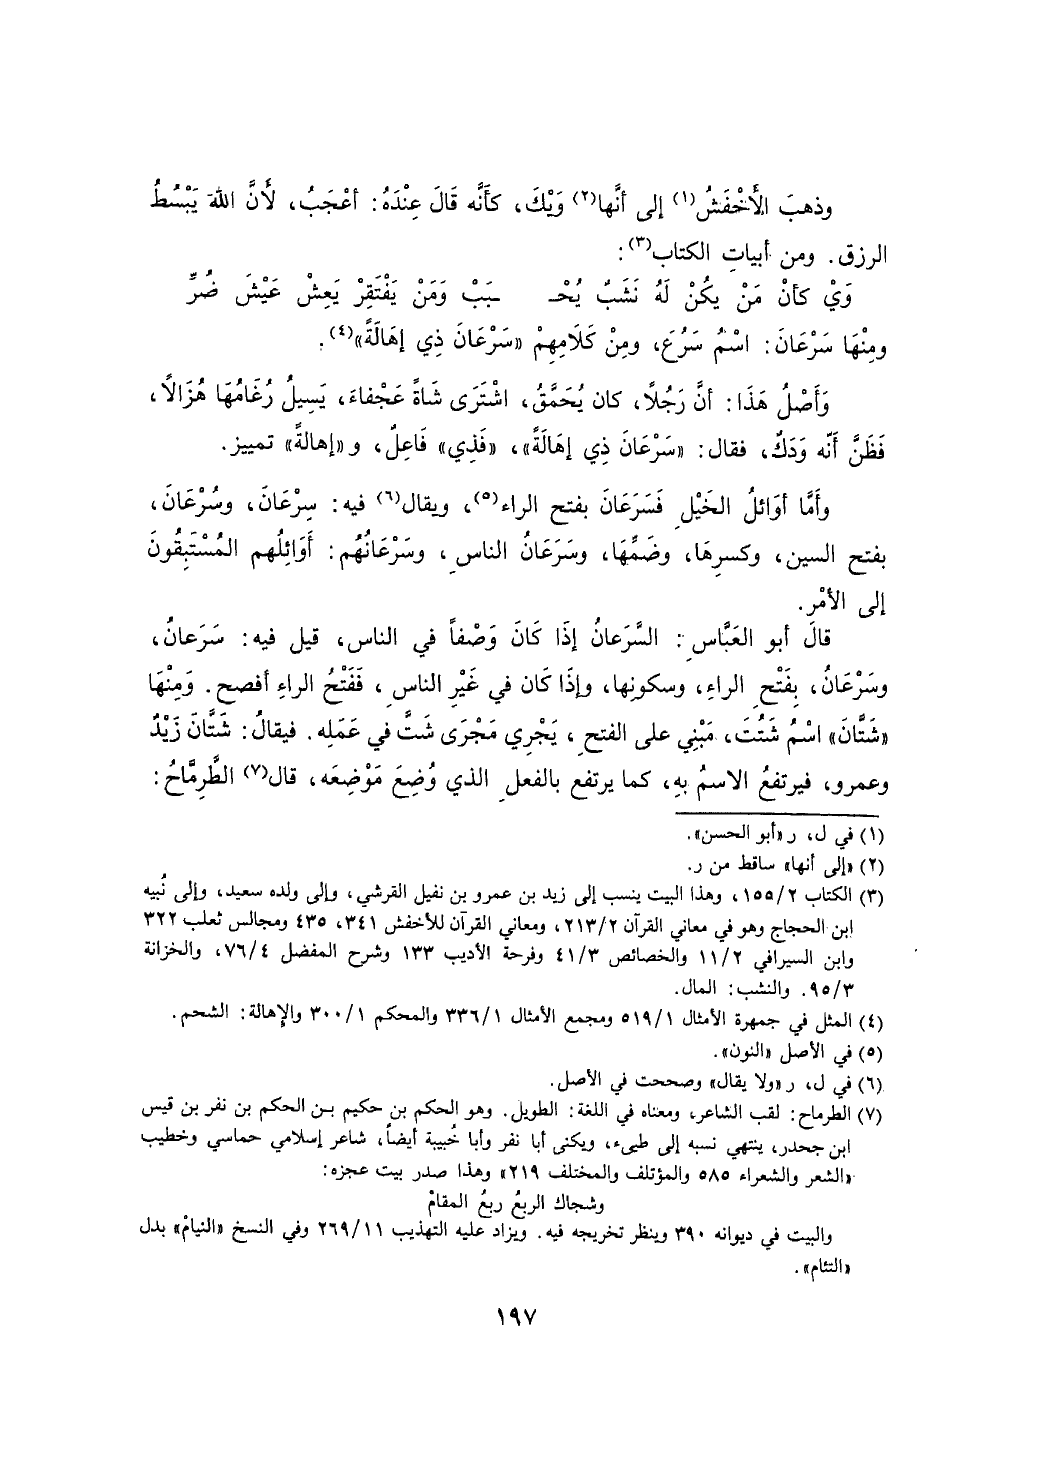 وذهبَ الأَخْفَشُ(١) إلى أنَّها(٢) وَيْكَ، كأَنَّه قَالَ عِنْدَهُ: أعْجَبُ، لأَنَّ اللهَ يَبْسُطُ
الرزق. ومن أبياتِ الكتاب(٣):
وَيْ كأنْ مَنْ يكُنْ لَهُ نَشَبٌ يُحْـ ـبَبْ وَمَنْ يَفْتَقِرْ يَعِشْ عَيْشَ ضُرِّ
ومِنْهَا سَرْعَانَ: اسْمُ سَرُعَ، ومِنْ كَلَامِهِمْ «سَرْعَانَ ذِي إهَالَةً»(٤).
وَأَصْلُ هَذَا: أنَّ رَجُلًا، كان يُحَمَّقُ، اشْتَرَى شَاةً عَجْفاءَ، يَسِيلُ رُغَامُهَا هُزَالًا،
فَظَنَّ أَنَّه وَدَكٌ، فقال: «سَرْعَانَ ذِي إهَالَةً»، «فَذِي» فَاعِلٌ، و «إهالةً» تمييز.
وأَمَّا أوَائلُ الخَيْلِ فَسَرَعَانَ بفتح الراء(٥)، ويقال(٦) فيه: سِرْعَانَ، وسُرْعَانَ،
بفتح السين، وكسرِهَا، وضَمِّهَا، وسَرَعَانُ الناسِ، وسَرْعَانُهُم: أَوَائِلُهم المُسْتَبِقُونَ
إلى الأمْر.
قالَ أبو العَبَّاسِ: السَّرَعانُ إذَا كَانَ وَصْفاً في الناس، قيل فيه: سَرَعانُ،
وسَرْعَانُ، بِفَتْحِ الراءِ، وسكونِها، وإذَا كان في غَيْرِ الناسِ، فَفَتْحُ الراءِ أفصح. وَمِنْهَا
«شَتَّانَ» اسْمُ شَتُتَ، مَبْنِي على الفتحِ، يَجْرِي مَجْرَى شَتَّ في عَمَلِه. فيقالُ: شَتَّانَ زَيْدٌ
وعمرو، فيرتفعُ الاسمُ بهِ، كما يرتفع بالفعلِ الذي وُضِعَ مَوْضِعَه، قال(٧) الطِّرِمَّاحُ:
(١) في ل، ر «أبو الحسن».
(٢) «إلى أنها» ساقط من ر.
(٣) الكتاب ١٥٥/٢، وهذا البيت ينسب إلى زيد بن عمرو بن نفيل القرشي، وإلى ولده سعيد، وإلى نُبيه
ابن الحجاج وهو في معاني القرآن ٢١٣/٢، ومعاني القرآن للأخفش ٣٤١، ٤٣٥ ومجالس ثعلب ٣٢٢
وابن السيرافي ١١/٢ والخصائص ٤١/٣ وفرحة الأديب ١٣٣ وشرح المفضل ٧٦/٤، والخزانة
٩٥/٣. والنشب: المال.
(٤) المثل في جمهرة الأمثال ٥١٩/١ ومجمع الأمثال ٣٣٦/١ والمحكم ٣٠٠/١ والإهالة: الشحم.
(٥) في الأصل «النون».
(٦) في ل، ر «ولا يقال» وصححت في الأصل.
(٧) الطرماح: لقب الشاعر، ومعناه في اللغة: الطويل. وهو الحكم بن حكيم بن الحكم بن نفر بن قيس
ابن جحدر، ينتهي نسبه إلى طيىء، ويكنى أبا نفر وأبا خُبيبة أيضاً، شاعر إسلامي حماسي وخطيب
«الشعر والشعراء ٥٨٥ والمؤتلف والمختلف ٢١٩» وهذا صدر بيت عجزه:
وشجاك الربعُ ربعُ المقامْ
والبيت في ديوانه ٣٩٠ وينظر تخريجه فيه. ويزاد عليه التهذيب ٢٦٩/١١ وفي النسخ «النيامْ» بدل
«التئام».
١٩٧